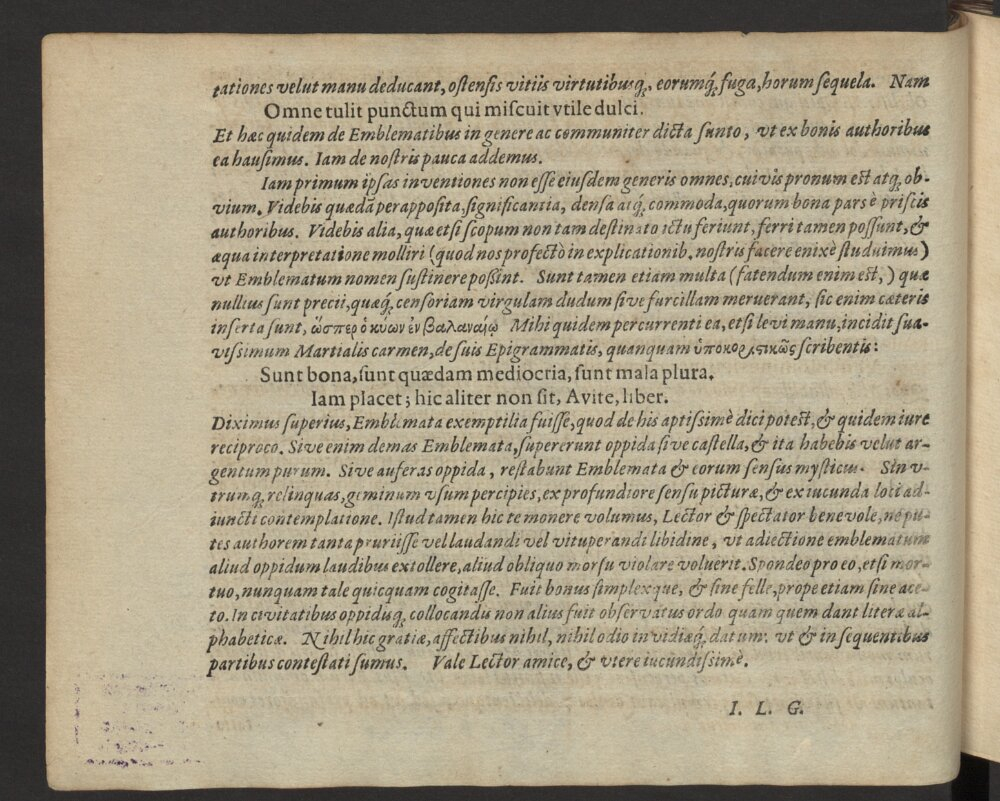 tationes velut manu deducant, ostensis vitiis virtutibusq́, eorumq́, fuga, horum sequela. Nam
Omne tulit punctum qui miscuit vtile dulci.
Et hæc quidem de Emblematibus in genere ac communiter dicta sunto, vt ex bonis authoribus
ea hausimus. Iam de nostris pauca addemus.
Iam primum ipsas inventiones non esse eiusdem generis omnes, cuivis pronum est atq́, ob-
vium. Videbis quædā perapposita, significantia, densa atq́, commoda, quorum bona pars è priscis
authoribus. Videbis alia, quæ etsi scopum non tam destinato ictu feriunt, ferri tamen possunt, &
æqua interpretatione molliri (quod nos profectò in explicationib. nostris facere enixè studuimus)
vt Emblematum nomen sustinere possint. Sunt tamen etiam multa (fatendum enim est,) quæ
nullius sunt precii, quæq́, censoriam virgulam dudum sive furcillam meruerant, sic enim cæteris
inserta sunt, ὥσπερ ὁ κυων ἐν βαλαναίῳ Mihi quidem percurrenti ea, etsi levi manu, incidit sua-
vissimum Martialis carmen, de suis Epigrammatis, quanquam ὑποκοριστικῶς scribentis:
Sunt bona, sunt quædam mediocria, sunt mala plura.
Iam placet; hic aliter non fit, Avite, liber.
Diximus superius, Emblemata exemptilia fuisse, quod de his aptissimè dici potest, & quidem iure
reciproco. Sive enim demas Emblemata, supererunt oppida sive castella, & ita habebis velut ar-
gentum purum. Sive auferas oppida, restabunt Emblemata & eorum sensus mysticus. Sin v-
trumq́, relinquas, geminum vsum percipies, ex profundiore sensu picturæ, & ex iucunda loci ad-
iuncti contemplatione. Istud tamen hic te monere volumus, Lector & spectator benevole, ne pu-
tes authorem tanta pruriisse vel laudandi vel vituperandi libidine, vt adiectione emblematum
aliud oppidum laudibus extollere, aliud obliquo morsu violare voluerit. Spondeo pro eo, etsi mor-
tuo, nunquam tale quicquam cogitasse. Fuit bonus simplexque, & sine felle, prope etiam sine ace-
to. In civitatibus oppidisq́, collocandis non alius fuit observatus ordo quam quem dant literæ al-
phabeticæ. Nihil hic gratiæ, affectibus nihil, nihil odio invidiæq́, datum: vt & in sequentibus
partibus contestati sumus. Vale Lector amice, & vtere iucundissimè.
I. L. G.